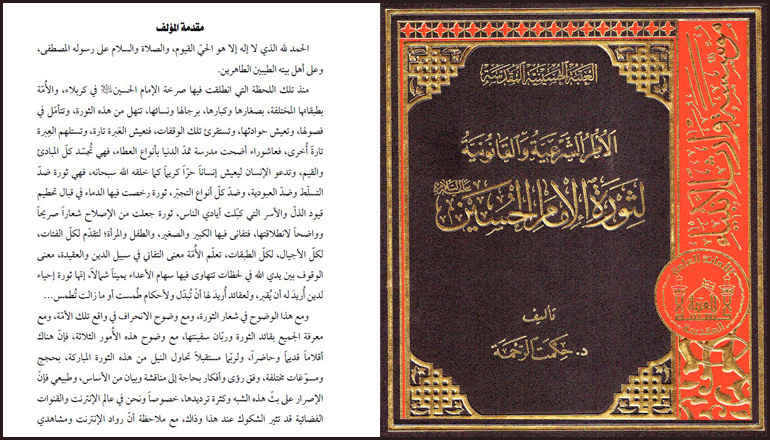 مقدمة المؤلف
الحمد لله الذي لا إله إلا هو الحيّ القيوم، والصلاة والسلام على رسوله المصطفى،
وعلى أهل بيته الطيبين الطاهرين.
منذ تلك اللحظة التي انطلقت فيها صرخة الإمام الحسين في كربلاء، والأُمّة
بطبقاتها المختلفة، بصغارها وكبارها، برجالها ونسائها، تنهل من هذه الثورة، وتتأمّل في
فصولها، وتعيش حوادثها، وتستقرئ تلك الوقفات، فتعيش العَبرة تارة، وتستلهم العِبرة
تارةً أُخرى، فعاشوراء أضحت مدرسة تمدّ الدنيا بأنواع العطاء، فهي تُجسّد كلّ المبادئ
والقيم، وتدعو الإنسان ليعيش إنساناً حرّاً كريماً كما خلقه الله سبحانه، فهي ثورة ضدّ
التسلّط وضدّ العبودية، وضدّ كلّ أنواع التجبّر، ثورة رخصت فيها الدماء في قبال تحطيم
قيود الذلّ والأسر التي كبّلت أيادي الناس، ثورة جعلت من الإصلاح شعاراً صريحاً
وواضحاً لانطلاقتها، فتفانى فيها الكبير والصغير، والطفل والمرأة؛ لتقدّم لكلّ الفئات،
لكلّ الأجيال، لكلّ الطبقات، تعلّم الأُمّة معنى التفاني في سبيل الدين والعقيدة، معنى
الوقوف بين يدي الله في لحظات تتهاوى فيها سهام الأعداء يميناً شمالاً، إنّها ثورة إحياء
لدين أُريد له أن يُقبر، ولعقائد أُريد لها أنْ تُبدّل ولأحكام طُمست أو ما زالت تُطمس...
ومع هذا الوضوح في شعار الثورة، ومع وضوح الانحراف في واقع تلك الأُمّة، ومع
معرفة الجميع بقائد الثورة وربّان سفينتها، مع وضوح هذه الأُمور الثلاثة، فإنّ هناك
أقلاماً قديماً وحاضراً، ولربّما مستقبلاً تحاول النيل من هذه الثورة المباركة، بحجج
ومسوّغات مختلفة، وفق رؤى وأفكار بحاجة إلى مناقشة وبيان من الأساس، وطبيعي فإنّ
الإصرار على بثّ هذه الشبه وكثرة ترديدها، خصوصاً ونحن في عالم الإنترنت والقنوات
الفضائية قد تثير الشكوك عند هذا وذاك، مع ملاحظة أنّ رواد الإنترنت ومشاهدي
العتبة الحسينية المقدسة
الأطر الشرعية والقانونية
لثورة الإمام الحسين عليه السلام
تأليف
د. حكمت الرحمة
مؤسسة وارث الأنبياء